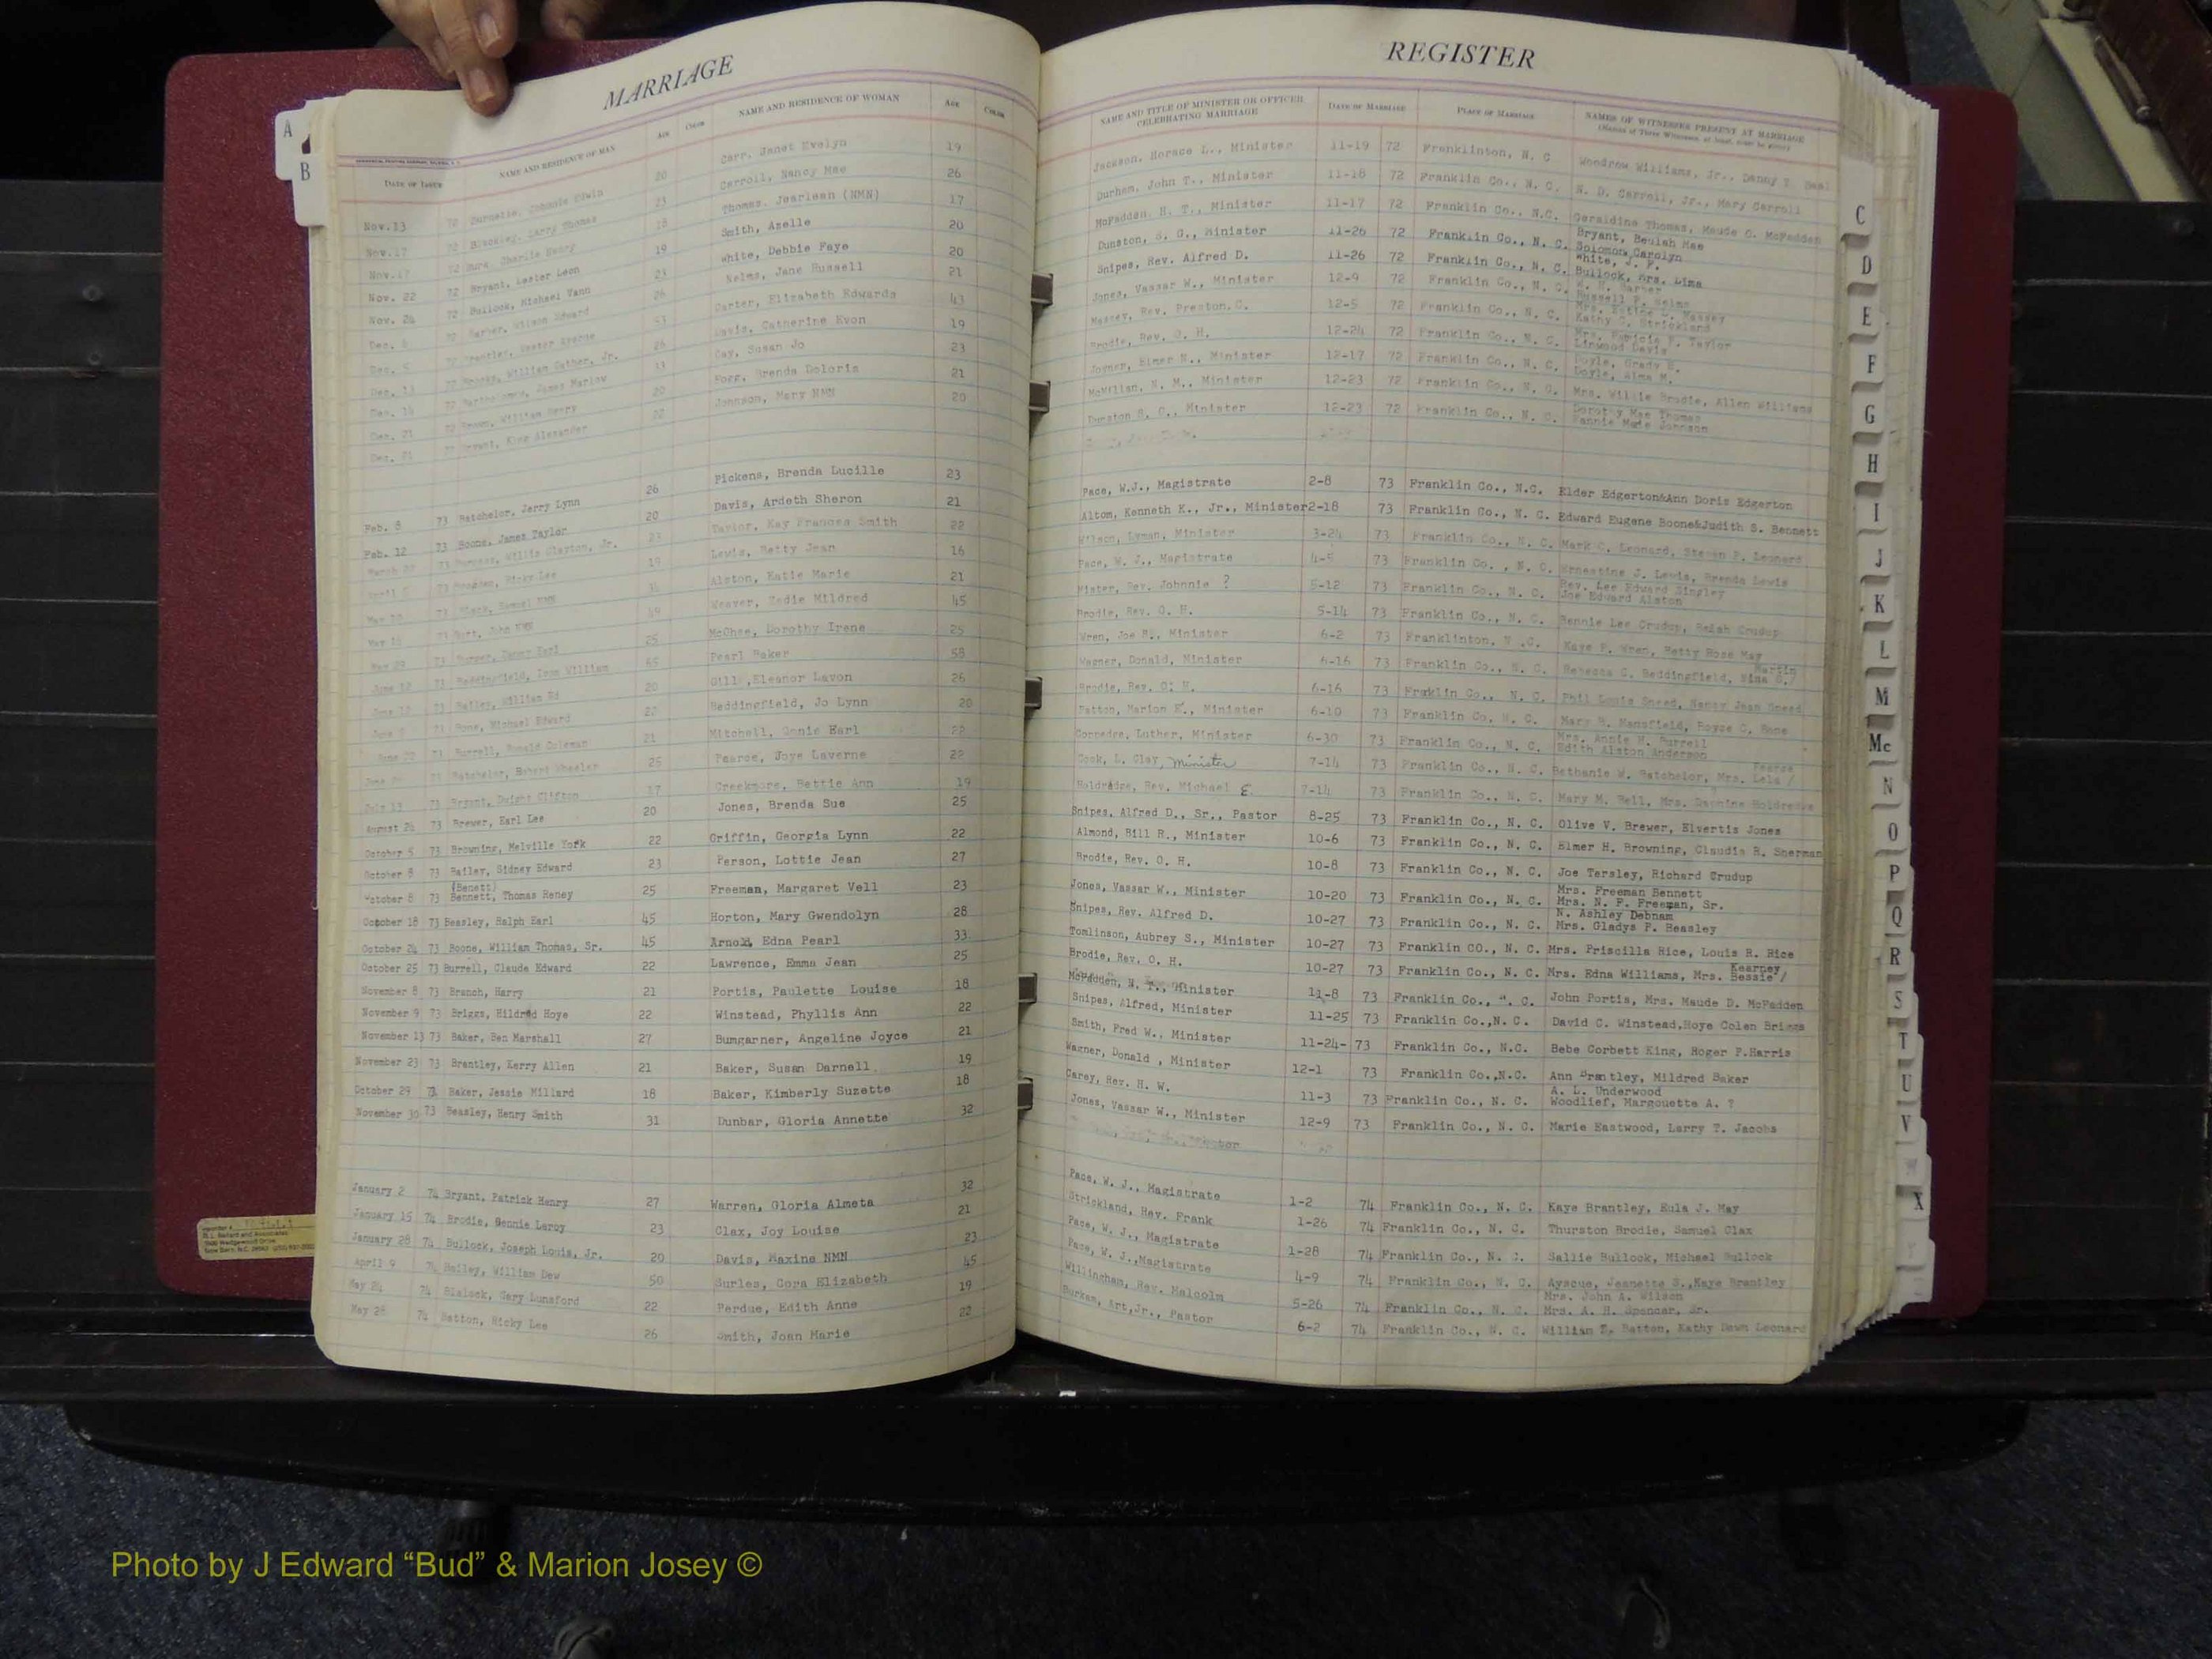 MARRIAGE
REGISTER
DATE OF ISSUE NAME AND RESIDENCE OF MAN AGE COLOR NAME AND RESIDENCE OF WOMAN AGE COLOR NAME AND TITLE OF MINISTER OR OFFICER CELEBRATING MARRIAGE DATE OF MARRIAGE PLACE OF MARRIAGE NAMES OF WITNESSES PRESENT AT MARRIAGE
Nov.13 72 Johnnie Edwin 20 Carr, Janet Evelyn 19 Jackson, Horace L., Minister 11-19 72 Franklinton, N. C Woodrow Williams, Jr., Danny T. Beal
Nov.17 72 Blackley, Larry Thomas 23 Carroll, Nancy Mae 26 Durham, John T., Minister 11-18 72 Franklin Co., N. C. N. D. Carroll, Jr., Mary Carroll
72 Charlie Henry 18 Thomas, Jearlean (NMN) 17 McFadden, H. T., Minister 11-17 72 Franklin Co., N.C. Geraldine Thomas, Maude O. McFadden
Nov. 22 72 Bryant, Lester Leon 19 Smith, Azelle 20 Dunston, S. G., Minister 11-26 72 Franklin Co., N. C. Bryant, Beulah Mae Solomon, Carolyn
Nov. 24 72 Bullock, Michael Vann 23 White, Debbie Faye 20 Snipes, Rev. Alfred D. 11-26 72 Franklin Co., N. C. White, J. P. Bullock, Mrs. Lima
Dec. 72 Barber, Wilson Edward 26 Nelms, Jane Russell 21 Jones, Vassar W., Minister 12-9 72 Franklin Co., N. C. Russell P. Nelms
Dec. 5 72 Brantley, 53 Carter, Elizabeth Edwards 43 Massey, Rev. Preston.C. 12-5 72 Franklin Co., N. C. Massey Kathy C. Strickland
Dec. 13 72 William Gather, Jr. 26 Davis, Catherine Evon 19 Brodie, Rev. O. H. 12-24 72 Franklin Co., N. C. Mrs. Patricia F. Taylor Linwood Davis
Dec. 14 72 Bartholomew, James Marlow 23 Gay, Susan Jo 23 Joyner, Elmer N., Minister 12-17 72 Franklin Co., N. C. Doyle, Grady B. Doyle, Alma M.
Dec. 21 72 Brown, William Henry 20 Fogg, Brenda Doloris 21 McMillan, N. M., Minister 12-23 72 Franklin Co., N. C. Mrs. Willie Brodie, Allen Williams
Dec. 72 Bryant, King Alexander 22 Johnson, Mary NMN 20 Dunston S. G., Minister 12-23 72 Franklin Co., N. C. Dorothy Mae Thomas Fannie Mae Johnson
Feb. 8 73 Batchelor, Jerry Lynn 26 Pickens, Brenda Lucille 23 Pace, W.J., Magistrate 2-8 73 Franklin Co., N.C. Elder Edgerton&Ann Doris Edgerton
Feb. 12 73 Boone, James Taylor 20 Davis, Ardeth Sheron 21 Altom, Kenneth K., Jr., Minister 2-18 73 Franklin Co., N. C. Edward Eugene Boone&Judith S. Bennett
March 73 Willis Clayton, Jr. 23 Taylor, Kay Frances Smith 22 Wilson, Lyman, Minister 3-24 73 Franklin Co., N. C. Mark C. Leonard, Steven P. Leonard
April 73 Ricky Lee 19 Lewis, Betty Jean 16 Pace, W. J., Magistrate 4-5 73 Franklin Co. , N. C. Ernestine J. Lewis, Brenda Lewis
May 73 Black, Samuel NMN Alston, Katie Marie 21 Mister, Rev. Johnnie ? 5-12 73 Franklin Co., N. C. Rev. Lee Edward Singley Joe Edward Alston
May 73 John NMN 49 Weaver, Zedie Mildred 45 Brodie, Rev. O. H. 5-14 73 Franklin Co., N. C. Bennie Lee Crudup, Crudup
May 29 73 Earl 25 McGhee, Dorothy Irene 25 Wren, Joe R., Minister 6-2 73 Franklinton, N .C. Kaye P. Wren, Betty Rose May
June 12 73 Beddingfield, Iven William 65 Pearl Baker 58 Wagner, Donald, Minister 6-16 73 Franklin Co., N. C. Rebecca G. Beddingfield, Martin
June 73 Bailey, William Ed 20 Gill ,Eleanor Lavon 26 Brodie, Rev. O. H. 6-16 73 Franklin Co., N. C. Phil Louis Sneed, Nancy Jean Sneed
June 73 Bone, Michael Edward 22 Beddingfield, Jo Lynn 20 Patton, Marion K., Minister 6-10 73 Franklin Co. N. C. Mary B. Mansfield, Royce G. Bone
June 22 73 Burrell, Ronald Coleman 21 Mitchell, Sonie Earl 22 Coppedge, Luther, Minister 6-30 73 Franklin Co., N. C. Mrs. Annie M. Burrell Edith Alston Anderson
June 73 Batchelor, Robert Wheeler 25 Pearce, Joye Laverne 22 Cook, L. Clay, Minister 7-14 73 Franklin Co., N. C. Bethanie W. Batchelor, Mrs. Lela / Pearce
July 13 73 Bryant, Dwight Clifton 17 Creekmore, Bettie Ann 19 Holdredge, Rev. Michael E. 7-14 73 Franklin Co., N. C. Mary M. Bell, Mrs. Daphine Holdredge
August 24 73 Brewer, Earl Lee 20 Jones, Brenda Sue 25 Snipes, Alfred D., Sr., Pastor 8-25 73 Franklin Co., N. C. Olive V. Brewer, Elvertis Jones
October 5 73 Browning, Melville York 22 Griffin, Georgia Lynn 22 Almond, Bill R., Minister 10-6 73 Franklin Co., N. C. Elmer H. Browning, Claudia R. Sherman
October 8 73 Bailey, Sidney Edward 23 Person, Lottie Jean 27 Brodie, Rev. O. H. 10-8 73 Franklin Co., N. C. Joe Tersley, Richard Crudup
October 8 73 (Benett) Bennett, Thomas Reney 25 Freeman, Margaret Vell 23 Jones, Vassar W., Minister 10-20 73 Franklin Co., N. C. Mrs. Freeman Bennett Mrs. N. F. Freeman, Sr.
October 18 73 Beasley, Ralph Earl 45 Horton, Mary Gwendolyn 28 Snipes, Rev. Alfred D. 10-27 73 Franklin Co., N. C. N. Ashley Debnam Mrs. Gladys P. Beasley
October 24 73 Boone, William Thomas, Sr. 45 Arnold, Edna Pearl 33 Tomlinson, Aubrey S., Minister 10-27 73 Franklin CO., N. C. Mrs. Priscilla Rice, Louis R. Rice
October 25 73 Burrell, Claude Edward 22 Lawrence, Emma Jean 25 Brodie, Rev. O. H. 10-27 73 Franklin Co., N. C. Mrs. Edna Williams, Mrs. Bessie / Kearney
November 8 73 Branch, Harry 21 Portis, Paulette Louise 18 McFadden, N. T., Minister 11-8 73 Franklin Co., ". C. John Portis, Mrs. Maude D. McFadden
November 9 73 Briggs, Hildred Hoye 22 Winstead, Phyllis Ann 22 Snipes, Alfred, Minister 11-25 73 Franklin Co.,N. C. David C. Winstead,Hoye Colen Briggs
November 13 73 Baker, Ben Marshall 27 Bumgarner, Angeline Joyce 21 Smith, Fred W., Minister 11-24- 73 Franklin Co., N.C. Bebe Corbett King, Roger P.Harris
November 23 73 Brantley, Kerry Allen 21 Baker, Susan Darnell 19 Wagner, Donald , Minister 12-1 73 Franklin Co.,N.C. Ann Brantley, Mildred Baker
October 29 73 Baker, Jessie Millard 18 Baker, Kimberly Suzette 18 Carey, Rev. H. W. 11-3 73 Franklin Co., N. C. A. L. Underwood Woodlief, Margouette A. ?
November 30 73 Beasley, Henry Smith 31 Dunbar, Gloria Annette 32 Jones, Vassar W., Minister 12-9 73 Franklin Co., N. C. Marie Eastwood, Larry T. Jacobs
January 2 74 Bryant, Patrick Henry 27 Warren, Gloria Almeta 32 Pace, W. J., Magistrate 1-2 74 Franklin Co., N. C. Kaye Brantley, Eula J. May
January 15 74 Brodie, Bennie Leroy 23 Clax, Joy Louise 21 Strickland, Rev. Frank 1-26 74 Franklin Co., N. C. Thurston Brodie, Samuel Clax
January 28 74 Bullock, Joseph Louis, Jr. 20 Davis, Maxine NMN 23 Pace, W. J., Magistrate 1-28 74 Franklin Co., N. C. Sallie Bullock, Michael Bullock
April 9 74 Bailey, William Dew 50 Surles, Cora Elizabeth 45 Pace, W. J.,Magistrate 4-9 74 Franklin Co., N. C. Ayscue, Jeanette S.,Kaye Brantley
May 24 74 Blalock, Gary Lunsford 22 Perdue, Edith Anne 19 Willingham, Rev. Malcolm 5-26 74 Franklin Co., N. C. Mrs. John A. Wilson Mrs. A. H. Spencer, Sr.
May 28 74 Batton, Ricky Lee 26 Smith, Joan Marie 22 Durham, Art,Jr., Pastor 6-2 74 Franklin Co., N. C. William E. Batton, Kathy Dawn Leonard
A
B
C
D
E
F
G
H
I
J
K
L
M
Mc
N
O
P
Q
R
S
T
U
V
W
X
Y
Photo by J Edward “Bud” & Marion Josey ©